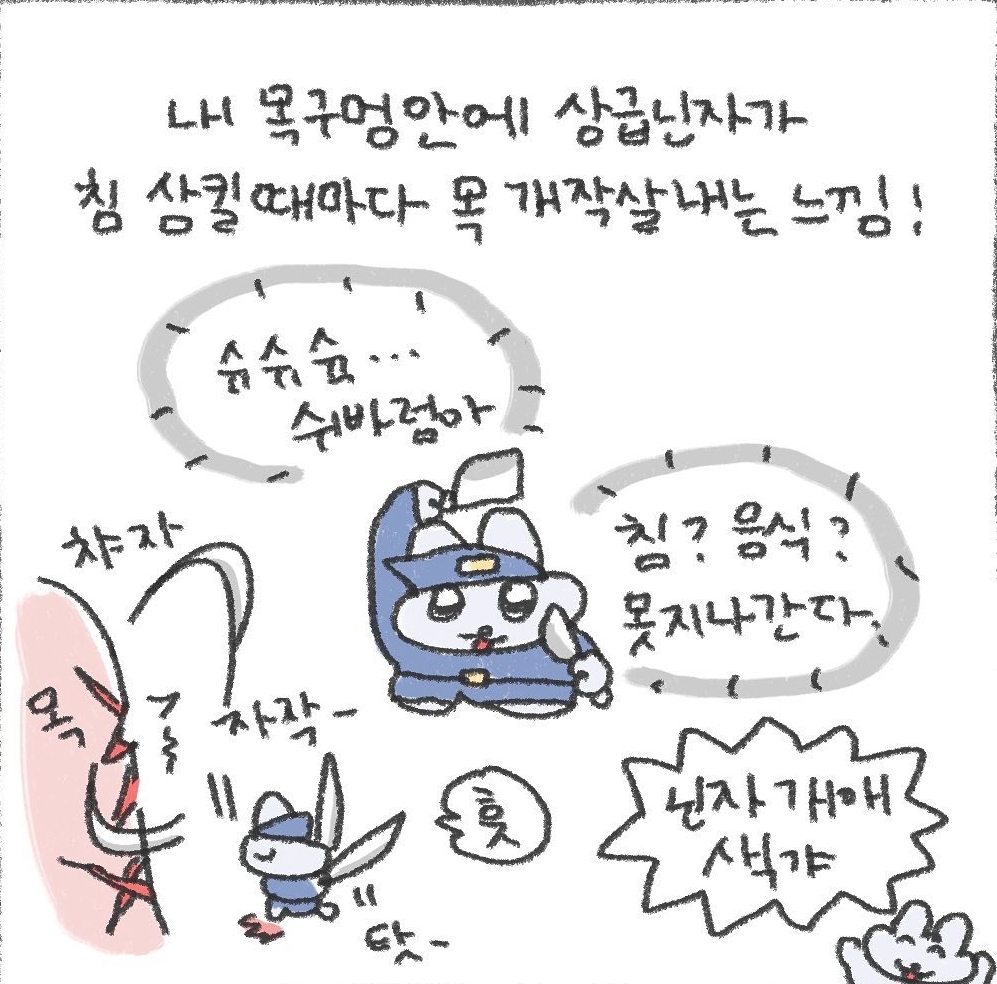 내 목구멍안에 상급닌자가
침 삼킬때마다 목 개작살내는 느낌!
슈슈슢...
쉬바럼아
침? 음식?
못지나간다.
챠쟈
목
자작-
흣
닌자 개애
색갸
탓-